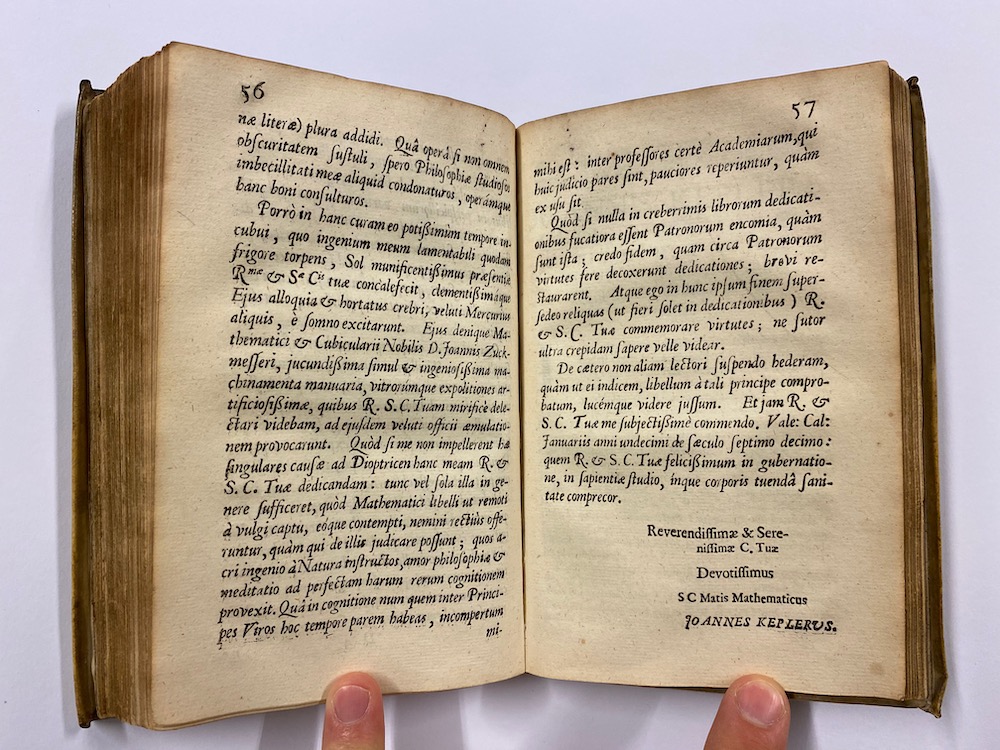 56
næ literæ) plura addidi. Quâ operâ si non omnem
obscuritatem sustuli, spero Philosophiæ studiosos
imbecillitati meæ aliquid condonaturos, operámque
hanc boni consulturos.
Porrò in hanc curam eo potissimùm tempore in-
cubui, quo ingenium meum lamentabili quodam
frigore torpens, Sol munificentissimus præsentiæ
Rmæ & Sæ Cis tuæ concalefecit, clementissimaque
Ejus alloquia & hortatus crebri, veluti Mercurius
aliquis, è somno excitarunt. Ejus denique Ma-
thematici & Cubicularii Nobilis D. Joannis Zuck-
messeri, jucundissima simul & ingeniosissima ma-
chinamenta manuaria, vitrorúmque expolitiones ar-
tificiosissimæ, quibus R. S. C. Tuam mirificè dele-
ctari videbam, ad ejusdem veluti officii æmulatio-
nem provocarunt. Quòd si me non impellerent hæ
singulares causæ ad Dioptricen hanc meam R. &
S. C. Tuæ dedicandam: tunc vel sola illa in ge-
nere sufficeret, quòd Mathematici libelli ut remoti
à vulgi captu, eóque contempti, nemini rectiùs offe-
runtur, quàm qui de illis judicare possunt; quos a-
cri ingenio à Natura instructos, amor philosophiæ &
meditatio ad perfectam harum rerum cognitionem
provexit. Quâ in cognitione num quem inter Princi-
pes Viros hoc tempore parem habeas, incompertum
mi-
57
mihi est: inter professores certè Academiarum, qui
huic judicio pares sint, pauciores reperiuntur, quàm
ex usu sit.
Quòd si nulla in creberrimis librorum dedicati-
onibus fucatiora essent Patronorum encomia, quàm
sunt ista; credo fidem, quam circa Patronorum
virtutes fere decoxerunt dedicationes; brevi re-
staurarent. Atque ego in hunc ipsum finem super-
sedeo reliquas (ut fieri solet in dedicationibus) R.
& S. C. Tuæ commemorare virtutes; ne sutor
ultra crepidam sapere velle videar.
De cætero non aliam lectori suspendo hederam,
quàm ut ei indicem, libellum à tali principe compro-
batum, lucémque videre jussum. Et jam R. &
S. C. Tuæ me subjectissimè commendo. Vale: Cal:
Januariis anni undecimi de sæculo septimo decimo:
quem R. & S. C. Tuæ felicissimum in gubernatio-
ne, in sapientiæ studio, inque corporis tuendâ sani-
tate comprecor.
Reverendissimæ & Sere-
nissimæ C. Tuæ
Devotissimus
S C Matis Mathematicus
JOANNES KEPLERUS.